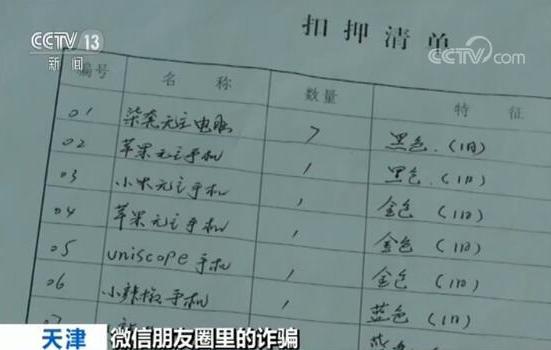 CCTV 13
新闻
CCTV.com
扣押清单
编号 名 称 数量 特 征
01 电脑 黑色.(旧)
02 苹果 手机 1 黑色.(旧)
03 小米 手机 1 金色(旧)
04 苹果 手机 1 金色(旧)
05 uniscope手机 1 金色(旧)
06 小辣椒手机 1 蓝色(旧)
07
天津 微信朋友圈里的诈骗